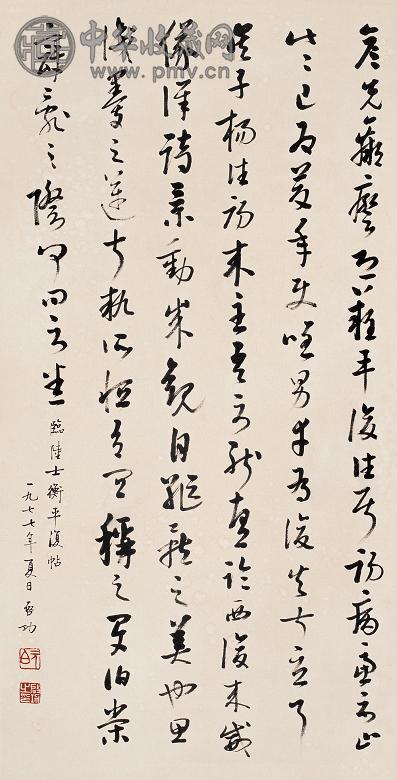 中华收藏网
www.pmv.cn
彦先羸瘵恐難平復往屬初病慮不止
此〻已為慶承使唯男幸為復失前憂耳
吳子楊往初來主吾不能盡臨西復來威
儀詳跱舉動成觀自軀體之美也思
識量之邁前執所恒有宜稱之夏伯榮
寇亂之際聞問不悉
臨陸士衡平復帖
一九七七年夏日 啟功